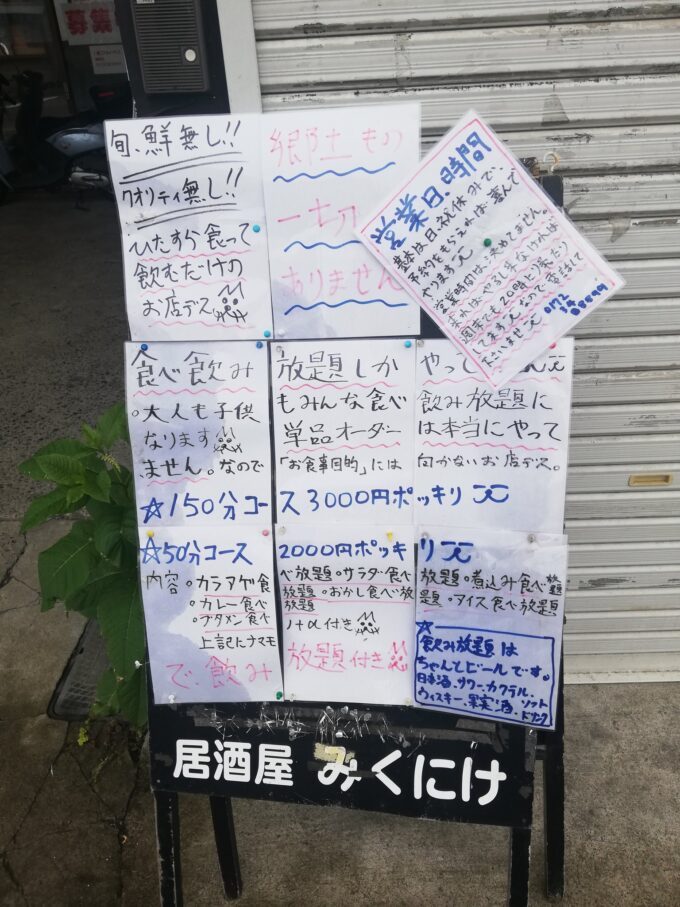 募集
旬、鮮無し!!
クオリティ無し!!
ひたすら食って
飲むだけの
お店デス
郷土もの
一切
ありません
営業日、時間
基本は日、祝休みで、
予約をもらえれば喜んで
やります
営業時間は決めてません。
週末でも20時より前だったり
ださいませ
食べ飲み放題しかやって
。大人も子供もみんな食べ飲み放題に
なります単品オーダーは本当にやって
ません。なので「お食事目的」には向かないお店デス。
☆150分コース3000円ポッキリ
☆50分コース2000円ポッキリ
内容。カラアゲ食べ放題。サラダ食べ放題。煮込み食べ放題
。カレー食べ放題。おかし食べ放題。アイス食べ放題
。ブタメン食べ放題
上記にナマモノ+α付き
で、飲み放題付き
☆飲み放題は
ちゃんとビールです。
日本酒、サワー、カクテル、
ウィスキー、果実酒、ソフト
ドリンク
居酒屋 みくにけ